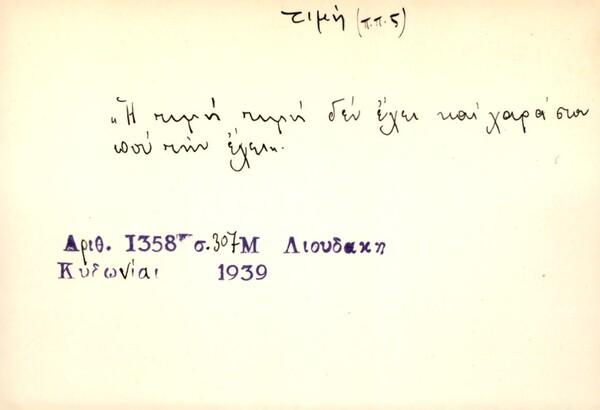 τιμή (π.π. 5)
„Ἡ τιμή τιμή δέν ἔχει καί χαρά στον
πού τήν ἔχει".
Αριθ. 1358 σ. 307 Μ Λιουδακη
Κυδωνίαι 1939